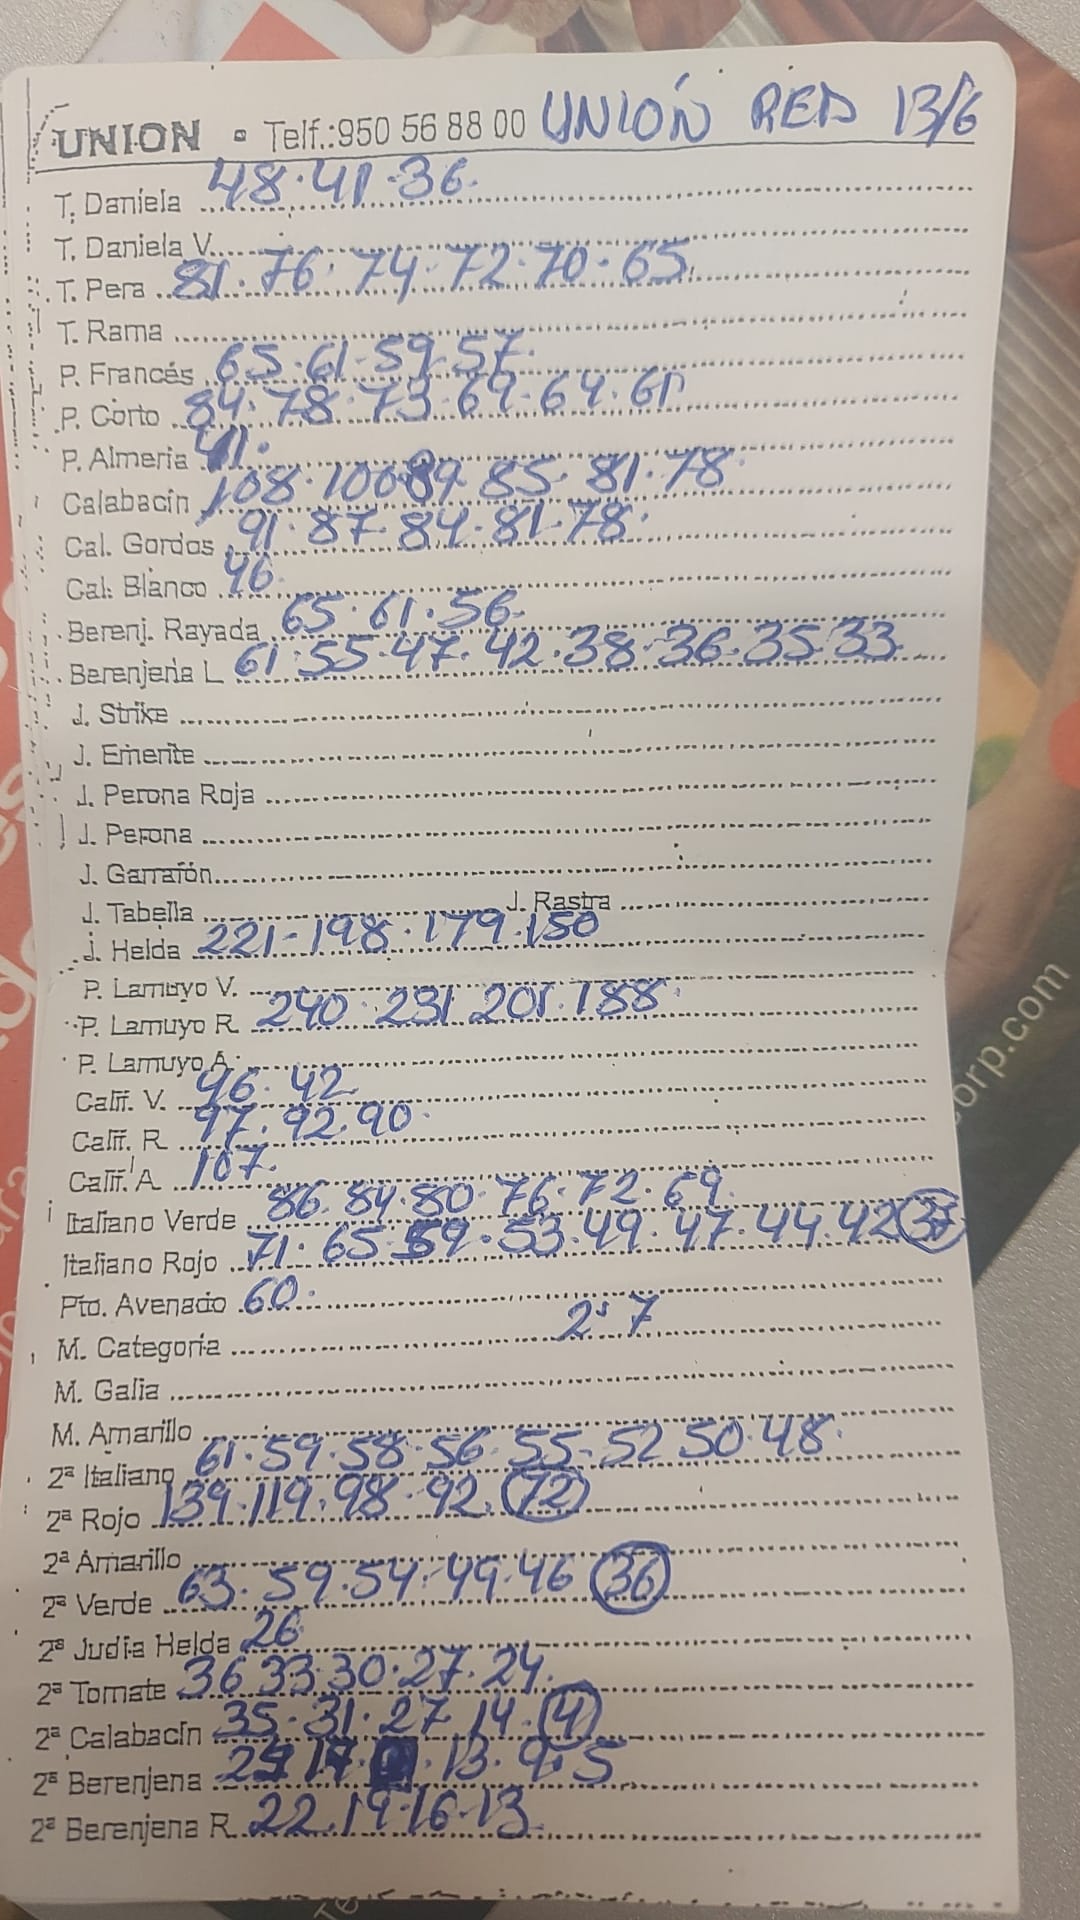 UNION • Telf.:950 56 88 00 UNIÓN RED 13/6
T. Daniela 48.41.36.
T. Daniela V.
T. Pera 81.76.74.72.70.65.
T. Rama
P. Francés 65.61.59.57.
P. Corto 84.78.73.69.64.61
P. Almeria 41.
Calabacín 108.100.89.85.81.78.
Cal. Gordos 91.87.84.81.78.
Cal. Blanco 46.
Berenj. Rayada 65.61.56.
Berenjena L 61.55.47.42.38.36.35.33.
J. Strike
J. Emerite
J. Perona Roja
J. Perona
J. Garrafón
J. Tabella J. Rastra
J. Helda 221.198.179.150
P. Lamuyo V.
P. Lamuyo R. 240.231.201.188.
P. Lamuyo A.
Calif. V. 46.42
Calif. R 97.92.90.
Calif. A 107.
Italiano Verde 86.84.80.76.72.69.
Italiano Rojo 71.65.59.53.49.47.44.42 37
Pto. Avenado 60.
M. Categoría 2ª 7
M. Galia
M. Amarillo
2ª Italiano 61.59.58.56.55.52 50.48.
2ª Rojo 139.119.98.92. 72
2ª Amarillo
2ª Verde 63.59.54.49.46 36
2ª Judía Helda 26
2ª Tomate 36 33 30.27.24.
2ª Calabacín 35.31.27.14. 4
2ª Berenjena 17. 13.9.5
2ª Berenjena R. 22.19.16.13.
corp.com